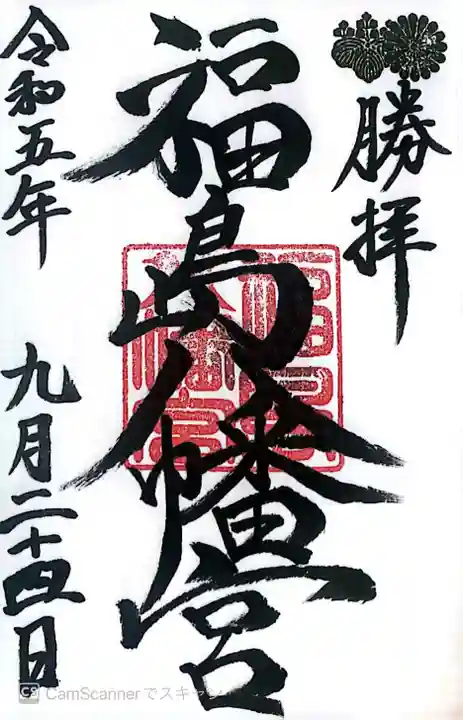 勝拝
福島八幡宮
令和五年 九月二十四日
CamScannerでスキャン